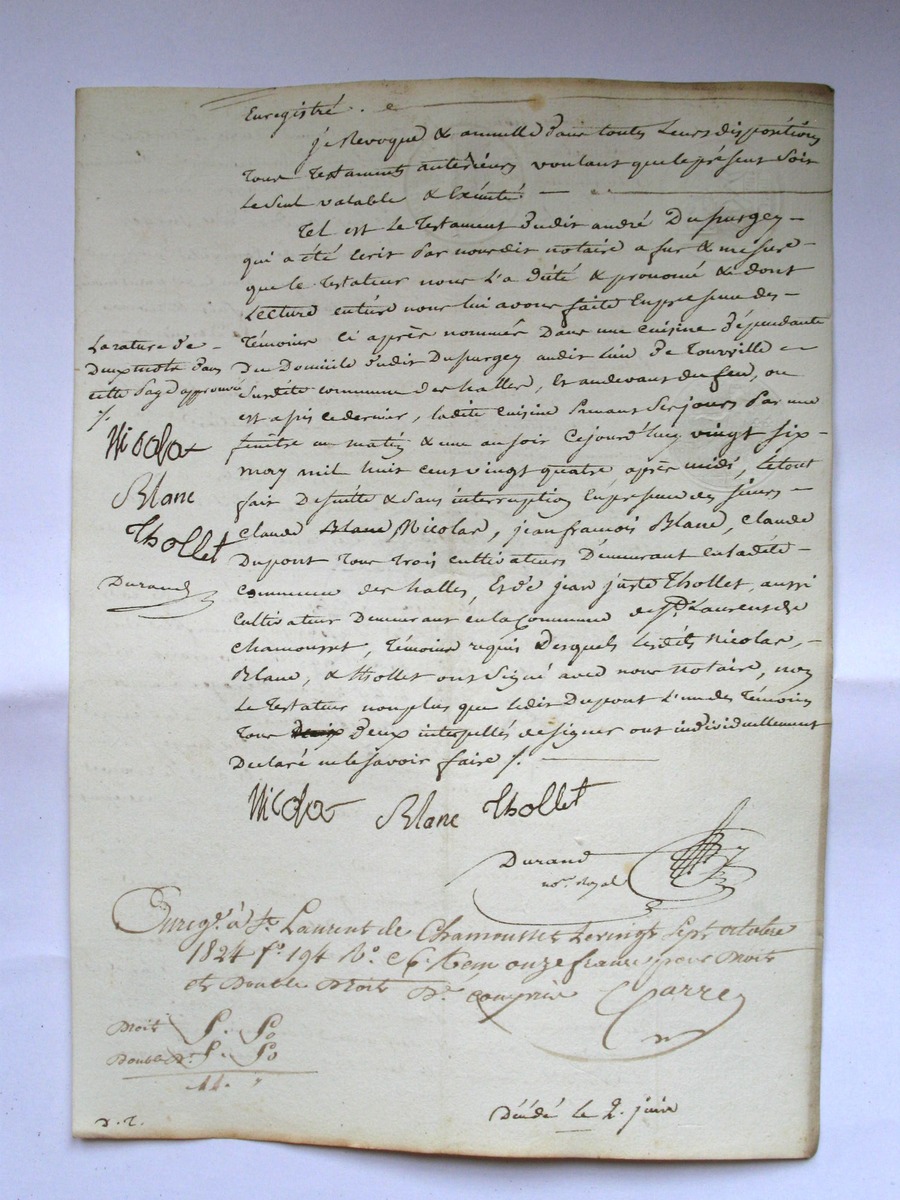 Enregistré . e
je Revoque & annulle Pour toutes Leurs dispositions
tous testaments antérieurs voulant que le présent Soit
Le seul valable & Exécuté
Tel est Le Testament dudit andré Dupurgey
qui a été Ecrit Par nous dit notaire a fur & mesure
que le Testateur nous L'a dicté & prononcé & dont
Lecture entière nous lui avons faite En presence des
Témoins ci après nommés Dans une cuisine dépendante
Du Domicile dudit Dupurgey audit lieu de Tourville
Susdite commune des halles, Et au devant du feu, ou
est assis ce dernier, ladite cuisine prenant Ses jours Par une
fenêtre au matin & une au soir Cejourd'huy vingt six
may mil huit cent vingt quatre après midi, Le tout
fait De suitte & Sans interruption En presence des sieurs
Claude Blanc Nicolas, jean francois Blanc, Claude
Dupont tous trois cultivateurs Demeurant en la dite
Commune des halles, Et de jean juste Thollet, aussi
Cultivateur Demeurant en la Commune de St. Laurent de
Chamousset, Témoins requis Desquels lesdits Nicolas,
Blanc, & Thollet ont Signé avec nous Notaire, non
Le Testateur non plus que ledit Dupont L'un des Témoins
Tous deux interpellés de signer ont individuellement
Declaré ne le savoir faire /.
La rature de
Deux mots dans
cette Page approuvée
/.
Nicolas
Blanc
Thollet
Durand
Nicolas Blanc Thollet
Durand
not. Royal
Enreg. à St. Laurent de Chamousset le vingt Sept octobre
1824 fo. 194 Vo. C 6. Reçu onze francs pour Droits
et Double Droits De. compris Carre
Droit 5. 50
Double D. 5. 50
11. "
D. 2.
Décédé le 2. juin